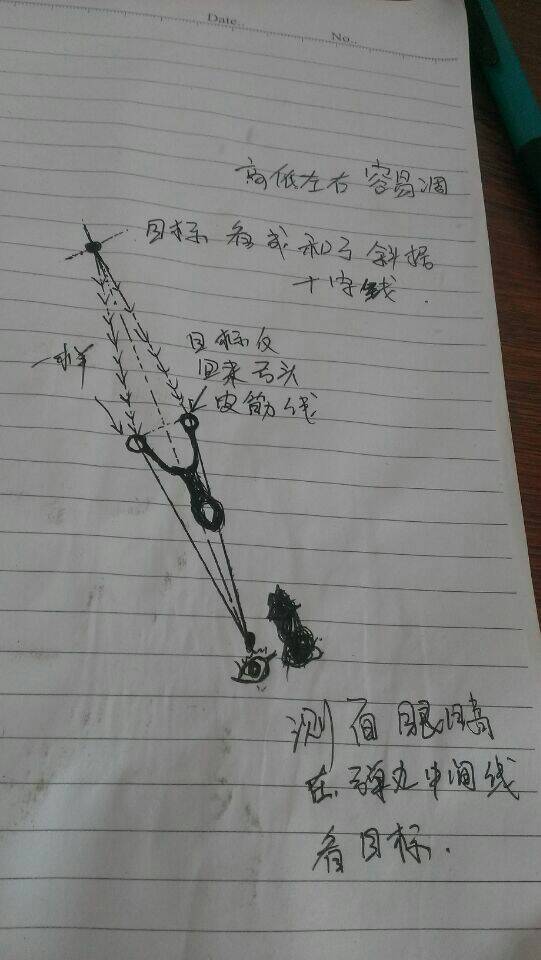 Date..
No..
高低左右 容易调
目标 看成 和弓
十字线
一样
目标
回来弓头
皮筋线
测面眼睛
在弹丸中间线
看目标.